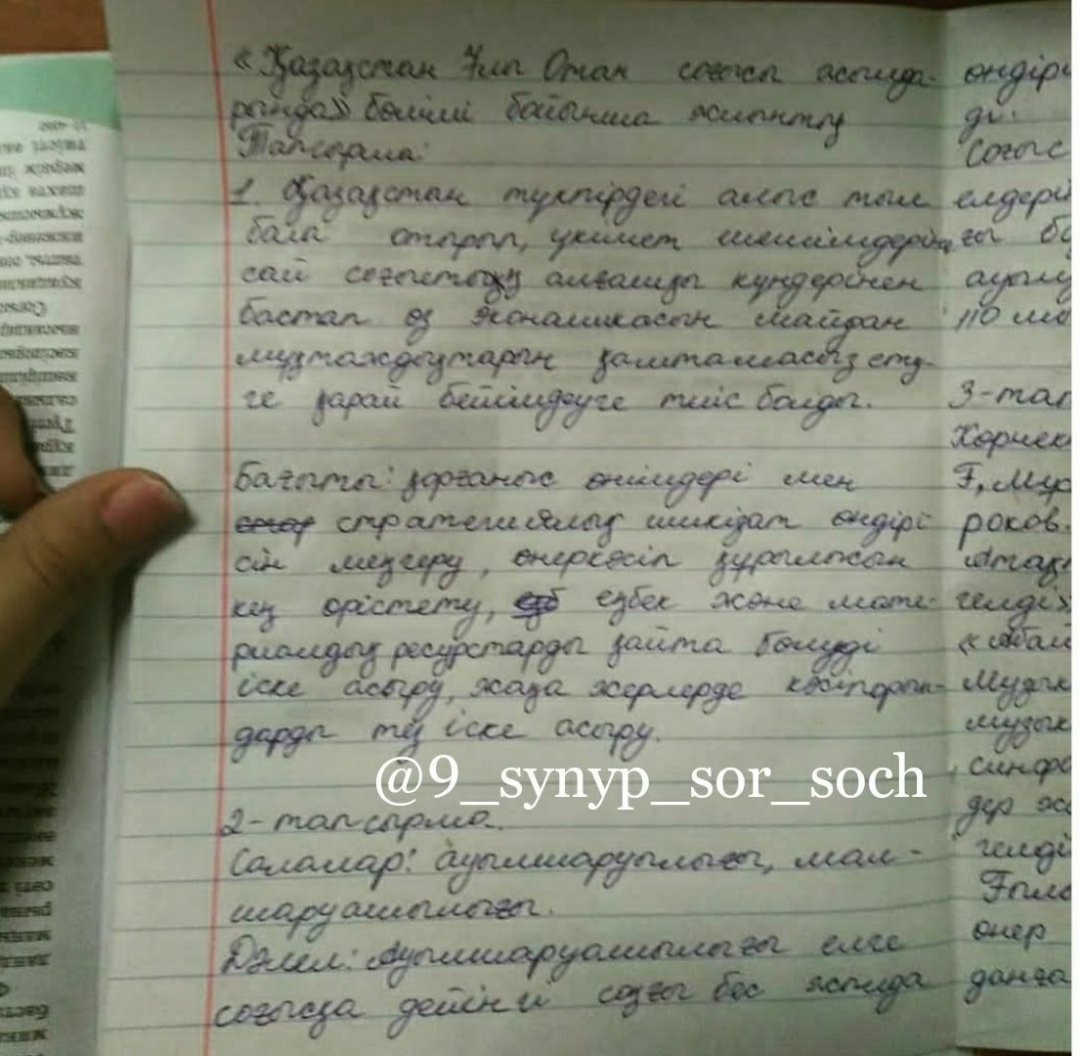 «Қазақстан Ұлы Отан соғысы жылда-
рында» бөлімі бойынша жиынтық
Тапсырма:
1. Қазақстан түкпірдегі алыс тыл
бола отырып, үкімет шешімдеріне
сай соғыстың алғашқы күндерінен
бастап өз экономикасын майдан
мұқтаждықтарын қамтамасыз ету-
ге қарай бейімдеуге тиіс болды.
Бағыты: қорғаныс өнімдері мен
стратегиялық шикізат өндірі
сін меңгеру, өнеркәсіп құрылысын
кең өрістету, еңбек және мате-
риалдық ресурстарды қайта бөлуді
іске асыру, жаңа жерлерде кәсіпорын-
дарды тез іске асыру.
@9_synyp_sor_soch
2-тапсырма.
Салалар: ауылшаруылығы, мал-
шаруашылығы.
Дәлел: Ауылшаруашылығы елге
соғысқа дейінгі соңғы бес жылда
өндірі
ді.
Соғыс
елдері
ғы
110
3-тап
Көрнек
Ғ. Мүс
роков.
гелді»
«Абай
Музык
музык
симфо
дер
гелді
Ғыло
өнер
данға